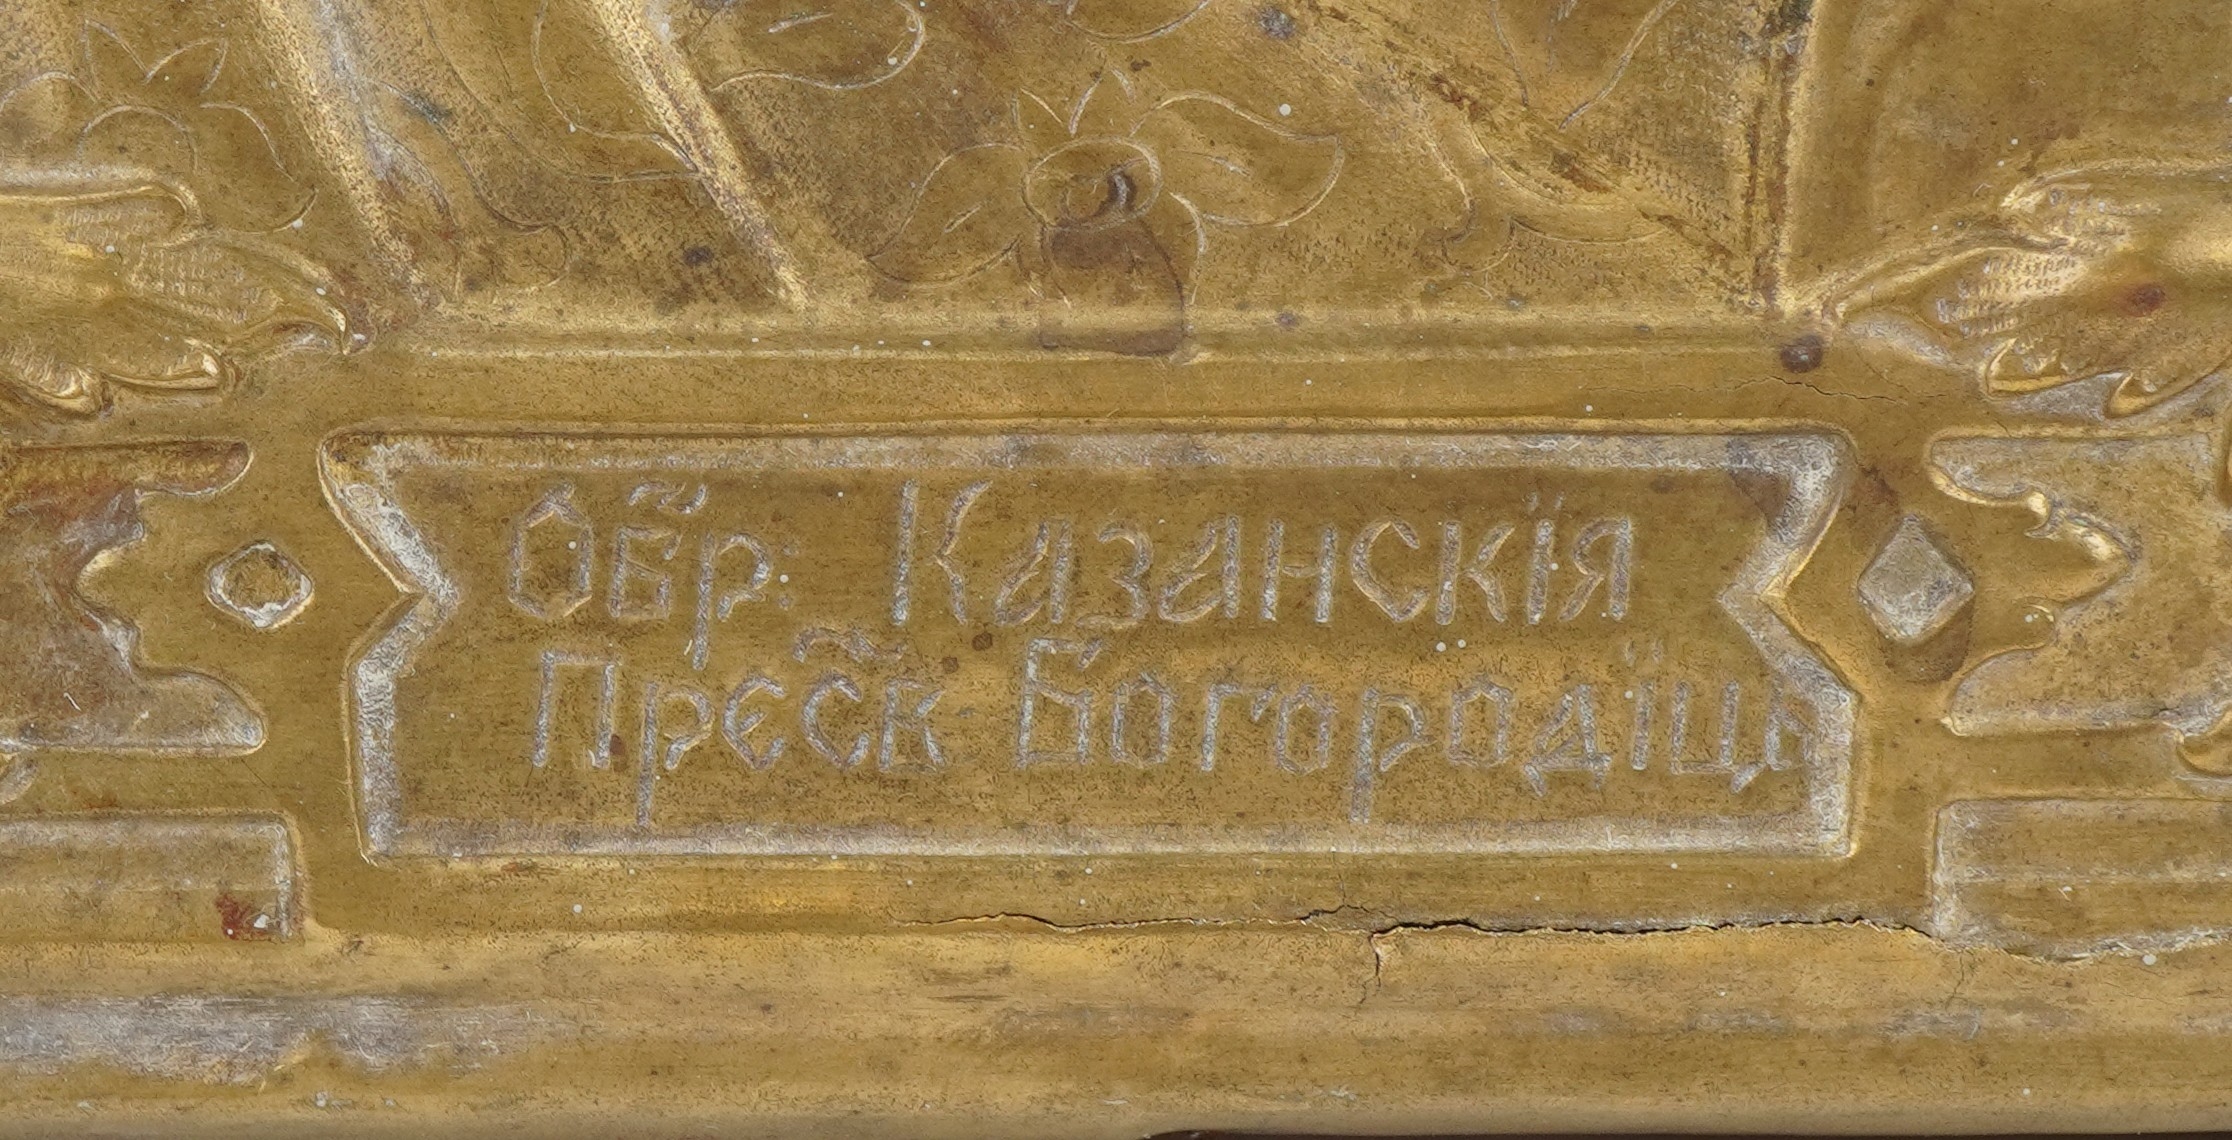 Обр: Казанскїя
Пресв Богородїцы